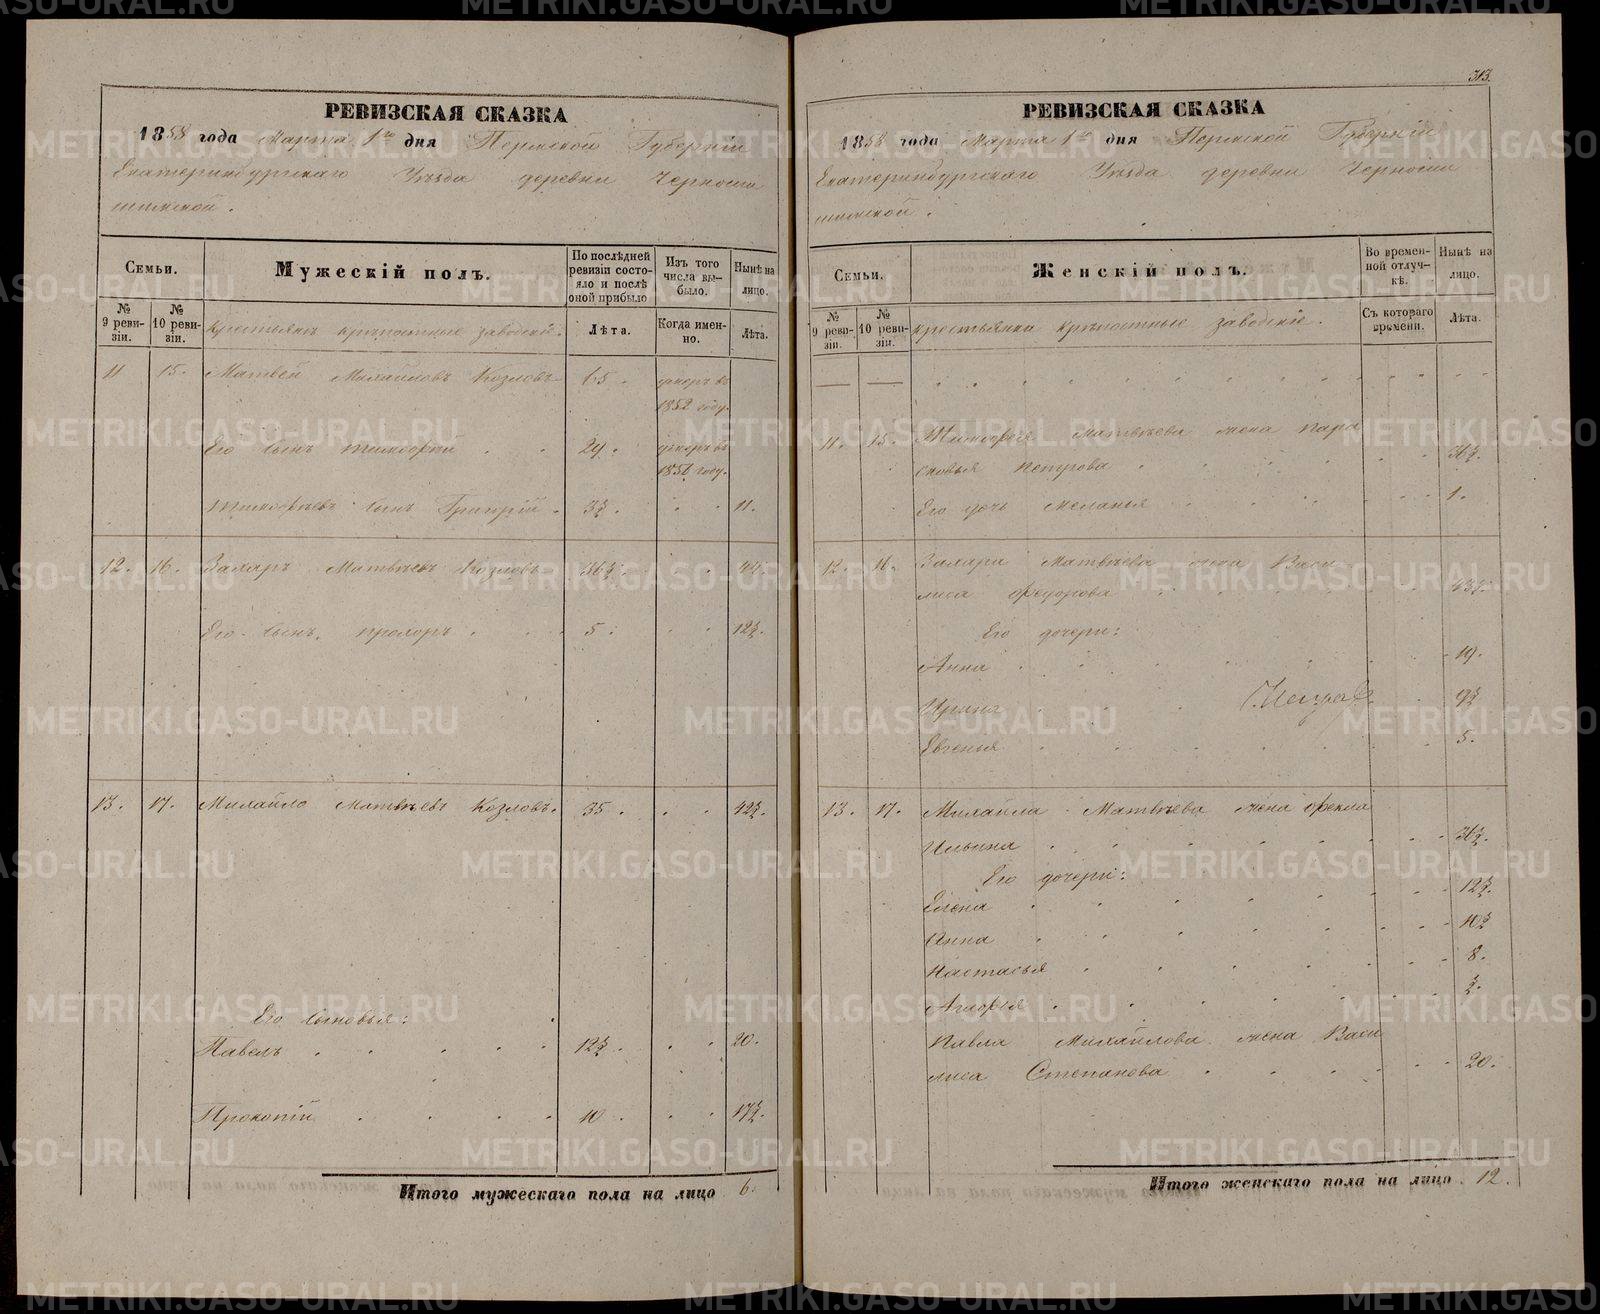 РЕВИЗСКАЯ СКАЗКА
1858 года Марта 1го дня Пермской Губерніи
Екатеринбургскаго Уѣзда деревни Черноши
шимской.
Семьи.
Мужескій полъ.
По послѣдней ревизіи состояло и послѣ оной прибыло
Изъ того числа выбыло.
Нынѣ на лицо.
№ 9 ревизіи.
№ 10 ревизіи.
крестьянъ крѣпостные заводскіе.
Лѣта.
Когда именно.
Лѣта.
11 15. Матвей Михайловъ Козловъ 65. умеръ въ 1852 году.
Его сынъ Тимофей 29. умеръ въ 1856 году.
Тимофѣевъ сынъ Григорій. 3½. 11.
12. 16. Захаръ Матвѣевъ Козловъ 36½. 44.
Его сынъ, Прохоръ 5. 12½.
13. 17. Михайло Матвѣевъ Козловъ. 35. 42½.
Его сыновья:
Павелъ 12½. 20.
Прокопій 10. 17½.
Итого мужескаго пола на лицо 6.
313.
РЕВИЗСКАЯ СКАЗКА
1858 года Марта 1го дня Пермской Губерніи
Екатеринбургскаго Уѣзда деревни Черноши
шимской.
Семьи.
Женскій полъ.
Во временной отлучкѣ.
Нынѣ на лицо.
№ 9 ревизіи.
№ 10 ревизіи.
крестьянки крѣпостные заводскіе.
Съ котораго времени.
Лѣта.
11. 15. Тимофея Матвѣева жена Пара
сковья Петрова 36½.
Его дочь Меланья 1.
12. 16. Захара Матвѣева жена Васи
лиса Федорова 43½.
Его дочери:
Анна 19.
Ирина 9½
Евгенія 5.
13. 17. Михайла Матвѣева жена Фекла
Ильина 36½.
Его дочери:
Елена 12½.
Анна 10½
Настасья 8.
½.
Павла Михайлова жена Васи
лиса Степанова 20.
Итого женскаго пола на лицо 12.
METRIKI.GASO-URAL.RU